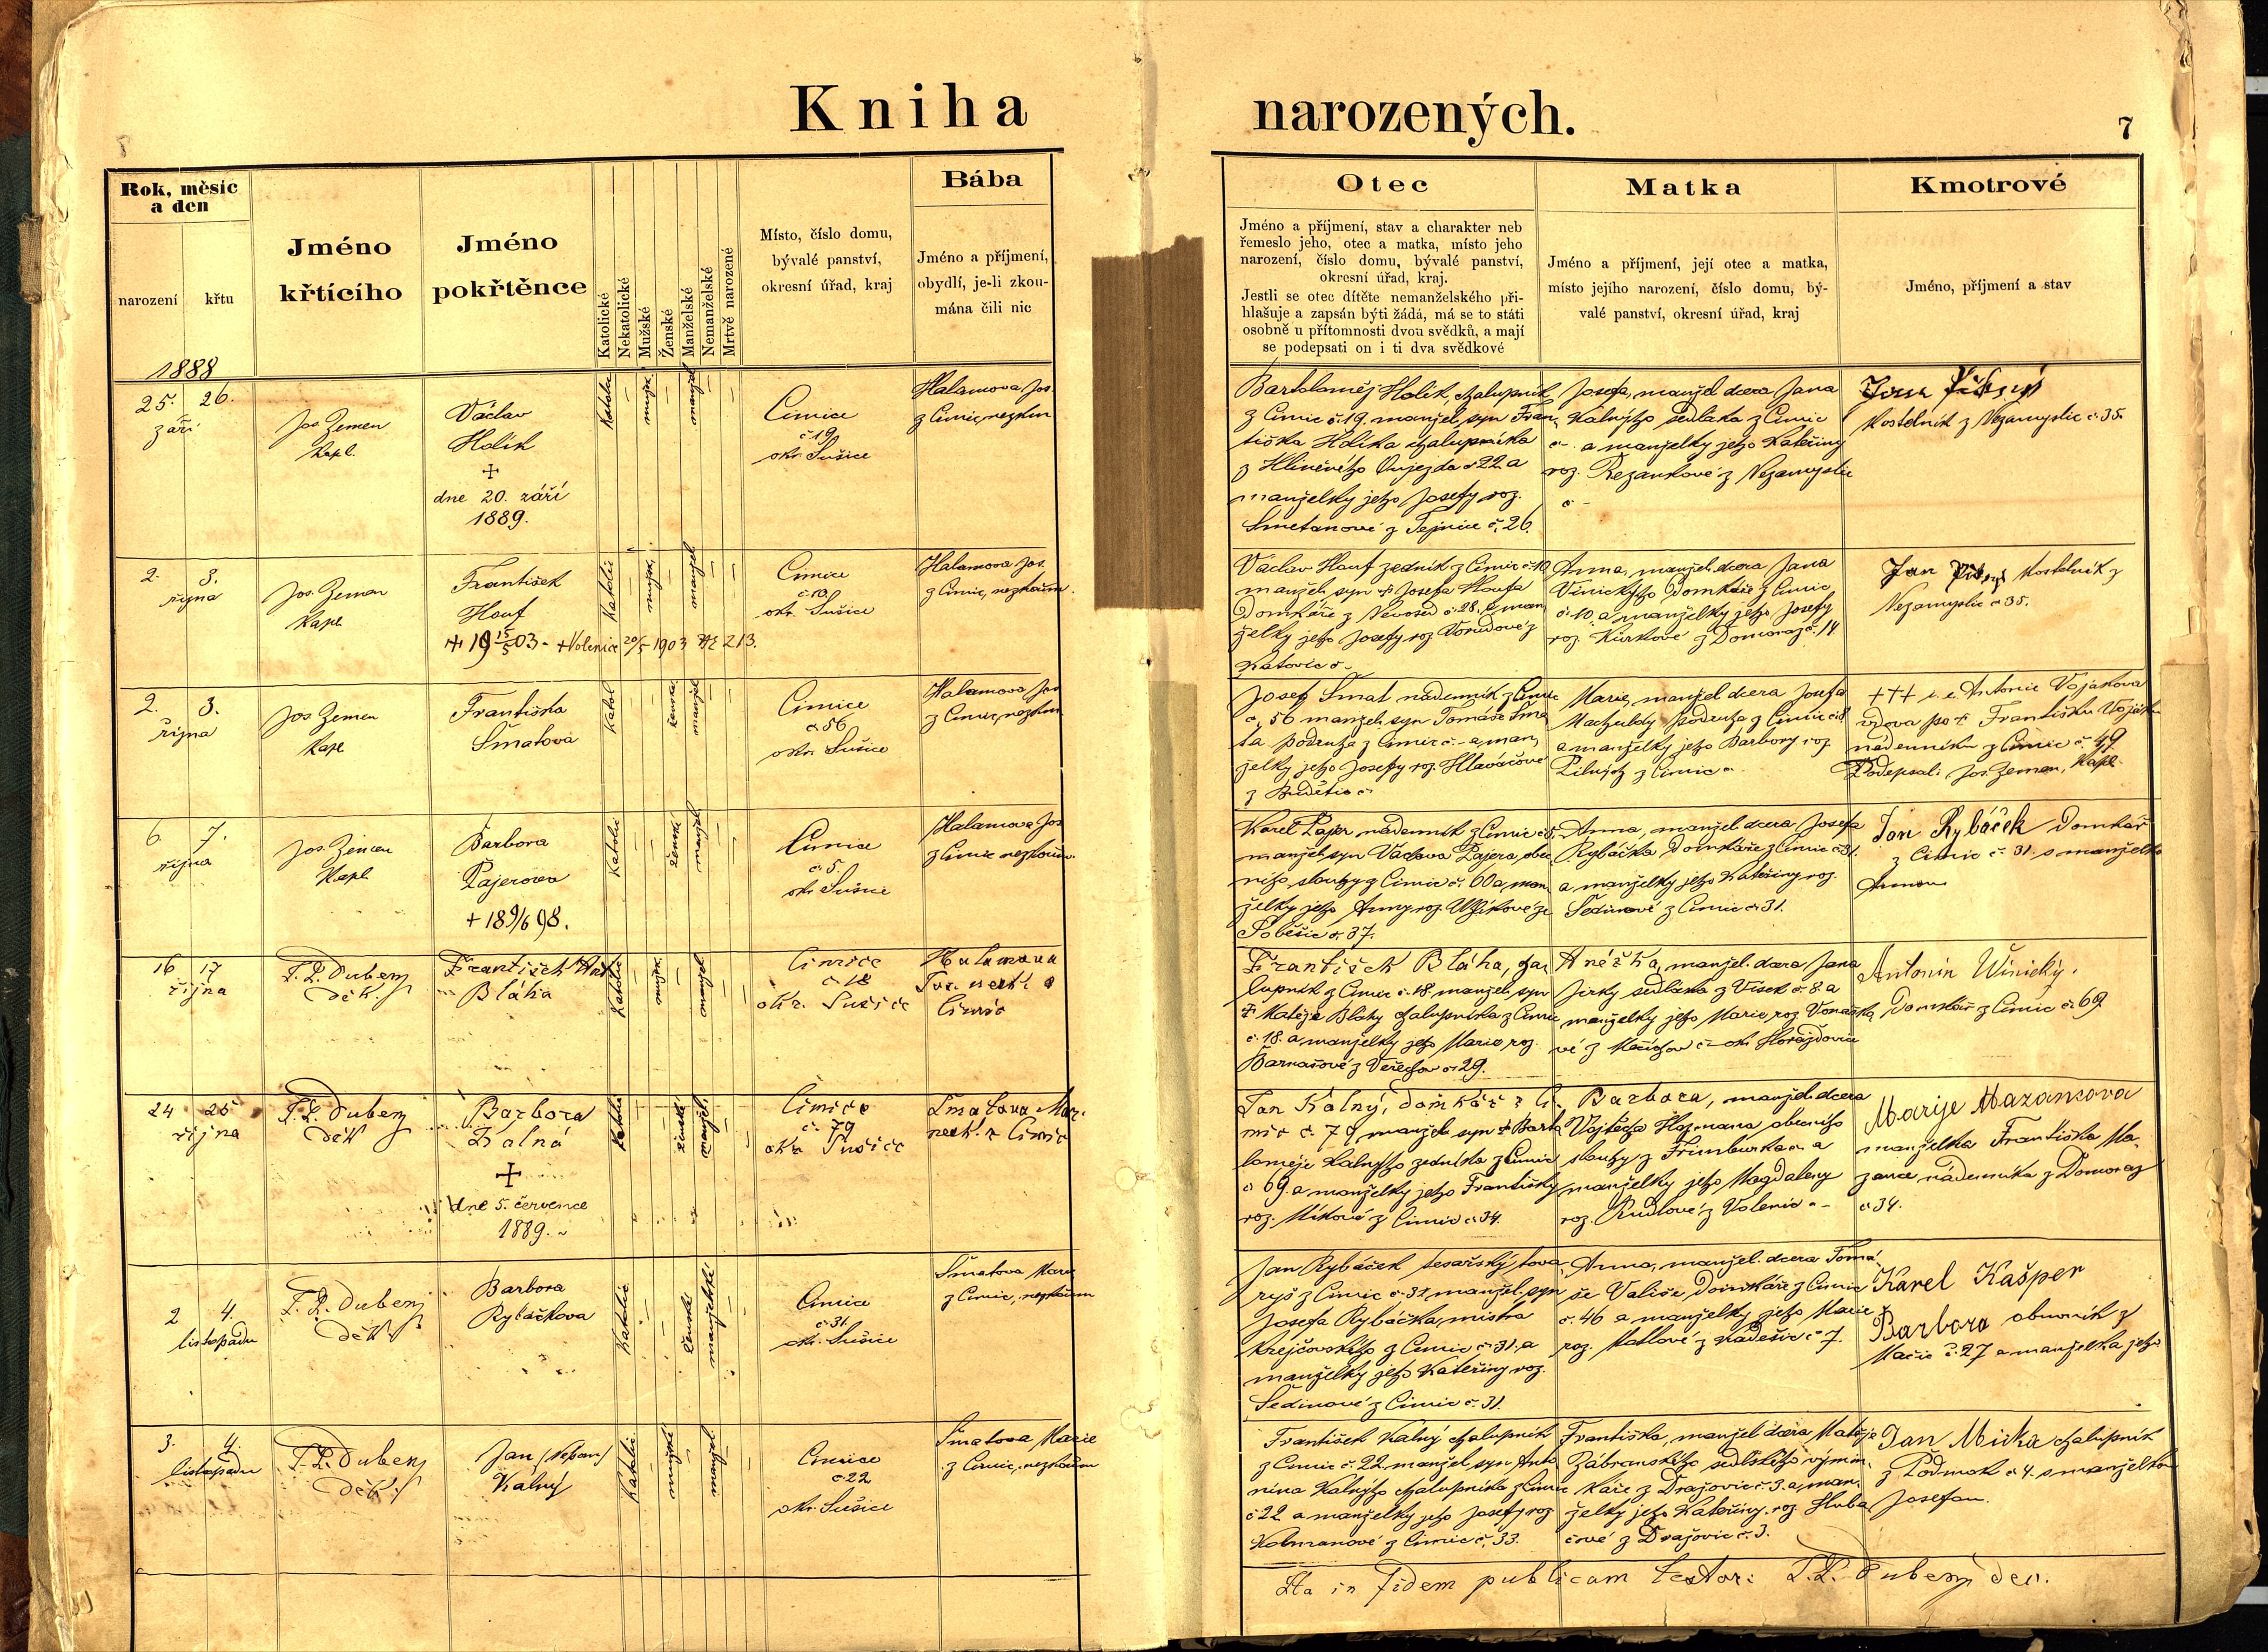 Kniha
narozených.
7
Rok, měsíc
a den
narození
křtu
Jméno
křtícího
Jméno
pokřtěnce
Katolické
Nekatolické
Mužské
Ženské
Manželské
Nemanželské
Mrtvě narozené
Místo, číslo domu,
bývalé panství,
okresní úřad, kraj
Bába
Jméno a příjmení,
obydlí, je-li zkou-
mána čili nic
Otec
Jméno a příjmení, stav a charakter neb
řemeslo jeho, otec a matka, místo jeho
narození, číslo domu, bývalé panství,
okresní úřad, kraj.
Jestli se otec dítěte nemanželského při-
hlašuje a zapsán býti žádá, má se to státi
osobně u přítomnosti dvou svědků, a mají
se podepsati on i ti dva svědkové
Matka
Jméno a příjmení, její otec a matka,
místo jejího narození, číslo domu, bý-
valé panství, okresní úřad, kraj
Kmotrové
Jméno, příjmení a stav
1888
25. 26.
září
Jos. Zeman
kapl.
Václav
Holík
+
dne 20. září
1889.
Katolic
mužsk.
manžel
Čimice
č. 19
okr. Sušice
Halamova Jos.
z Čimic, nezkm
Bartoloměj Holík, chalupník
z Čimic č. 19. manžel. syn Fran
tiška Holíka chalupníka
z Hliněného Oujezda č 22 a
manželky jeho Josefy roz.
Smetanové z Tejnice č. 26.
Josefa, manžel. dcera Jana
Kalného sedláka z Čimic
č - a manželky jeho Kateřiny
roz. Řezankové z Nezamyslic
č -
Jan
Kostelník z Nezamyslic č. 35.
2. 3.
října
Jos. Zeman
kapl.
František
Houf
+ 19 15/5 03 - + Volenice 20/5 1903 213.
Katolic
mužsk.
manžel.
Čimice
č. 10.
okr. Sušice
Halamova Jos.
z Čimic, nezkoum.
Václav Houf zedník z Čimic č. 10
manžel. syn + Josefa Houfa
Domkáře z č. 28. a man
želky jeho Josefy roz. z
Katovic č.
Anna, manžel. dcera Jana
Vinického Domkáře z Čimic
č. 10. a manželky jeho Josefy
roz. Kůrkové z Domoraz č. 14
Jan Kostelník z
Nezamyslic č 35.
2. 3.
října
Jos. Zeman
kapl.
Františka
Šmatova
Katol
žensk.
manžel
Čimice
č. 56
okr. Sušice
Halamova Jos
z Čimic, nezkm
Josef Šmat nádenník z Čimic
č. 56 manžel. syn Tomáše Šma
ta podruha z Čimic č. - a man
želky jeho Josefy roz. Hlaváčové
z Budětic č
Marie, manžel. dcera Josefa
podruha z Čimic č 8
a manželky jeho Barbory roz.
z Čimic č.
+++ i. e. Antonie Vojákova
vdova po + Františku Voják
nádenníku z Čimic č. 49
Podepsal: Jos. Zeman, kapl.
6. 7.
října
Jos. Zeman
kapl.
Barbora
Pajerova
+ 18 9/6 98.
Katolic
žensk
manžel.
Čimice
č. 5.
okr. Sušice
Halamova Jos
z Čimic nezkoum.
Karel Pajer nádenník z Čimic č 5,
manžel. syn Václava Pajera obec
ního sluhy z Čimic č. 60 a man
želky jeho Anny roz. ze
Soběšic č. 37.
Anna, manžel. dcera Josefa
Rybáčka Domkáře z Čimic č 31.
a manželky jeho Kateřiny roz.
Šedivové z Čimic č 31.
Jan Rybáček Domkář
z Čimic č. 31. s manželko
Annou
16 17
října
F. L. Dubený
děk.
František Ant
Bláha
Katolic
mužsk.
manžel
Čimice
č. 18
okr. Sušice
Halamova
Jos. nezk. z
Čimic
František Bláha, cha
lupník z Čimic č. 18. manžel. syn
+ Matěje Bláhy chalupníka z Čimic
č. 18. a manželky jeho Marie roz.
Barnašové z Veřechov č 29.
Anežka, manžel. dcera Jana
Jirky sedláka z Vísek č. 8. a
manželky jeho Marie, roz.
vé z č - okr. Horažďovice
Antonín Winický.
Domkář z Čimic č. 69
24 25
října
F. L. Dubený
děk
Barbora
Kalná
+
dne 5. července
1889.
Katolic
ženské
manžel.
Čimice
č. 79
okr. Sušice
Šmatova Mar.
nezk. z Čimic
Jan Kalný, domkář z Či
mic č. 79, manžel. syn + Barto
loměje Kalného zedníka z Čimic
č 69. a manželky jeho Františky
roz. Míkové z Čimic č. 34.
Barbora, manžel. dcera
Vojtěcha Hozmana obecního
sluhy z Frimburka č. a
manželky jeho Magdaleny
roz. Rudlové z Volenic č -
Marije Mazankova
manželka Františka Ma
zance nádenníka z Domoraz
č 34.
2 4.
listopadu
F. L. Dubený
děk.
Barbora
Rybáčkova
Katolic
ženské
manželské
Čimice
č. 31
okr. Sušice
Šmatova Marie
z Čimic, nezkoum
Jan Rybáček tesařský tova
ryš z Čimic č. 31, manžel. syn
Josefa Rybáčka, mistra
krejčovského z Čimic č. 31. a
manželky jeho Kateřiny roz.
Šedivové z Čimic č. 31.
Anna, manžel. dcera Tomá
še Vališe Domkáře z Čimic
č. 46 a manželky jeho Marie
roz. z Nadešic č 7.
Karel Kašper
Barbora obuvník z
Mačic č. 27 a manželka jeho
3. 4.
listopadu
F. L. Dubený
děk.
Jan (Nepom)
Kalný
Katolic
mužské
manžel
Čimice
č. 22
okr. Sušice
Šmatova Marie
z Čimic, nezkoum
František Kalný chalupník
z Čimic č. 22. manžel. syn Anto
nína Kalného chalupníka z Čimic
č 22 a manželky jeho Josefy roz
Kolmanové z Čimic č. 33.
Františka, manžel. dcera Matěje
Zábranského sedlského výmin
káře z Dražovic č. 3. a man
želky jeho Kateřiny, roz. Hluba
čové z Dražovic č. 3.
Jan Micka chalupník
z Podmok č 4. s manželkou
Josefou.
Ita in fidem publicam testor: F. L. Dubený dec.